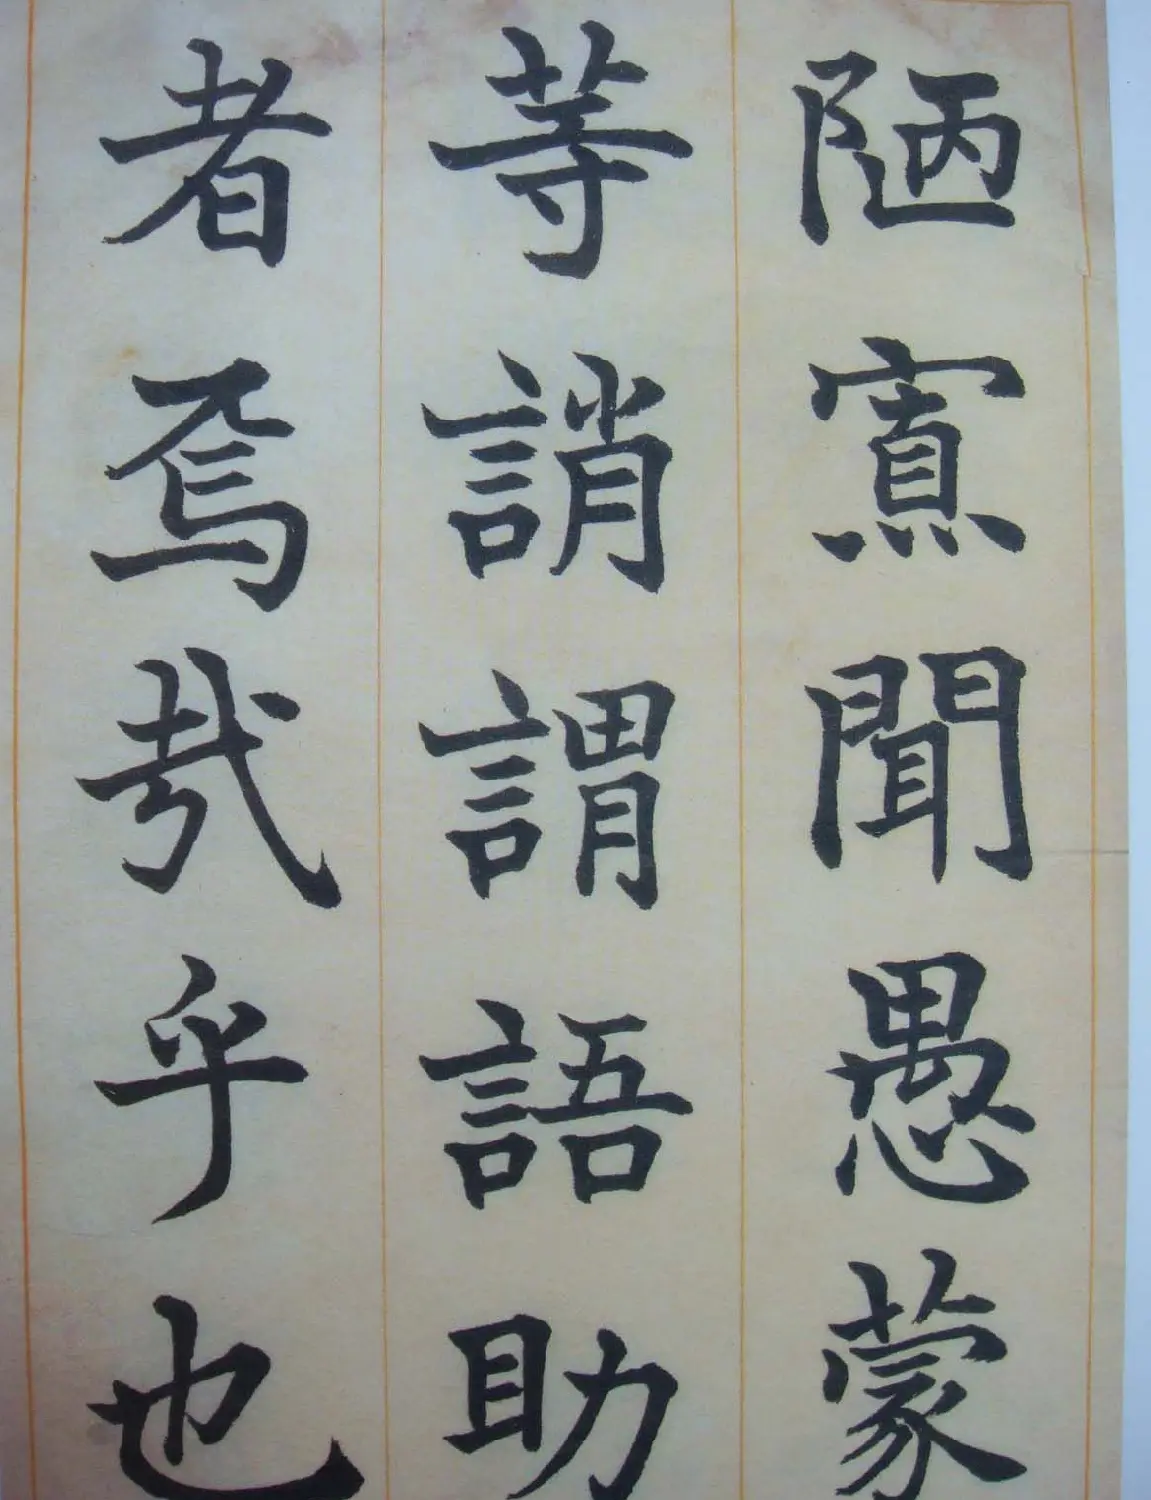 陋寡聞愚蒙
等誚謂語助
者焉哉乎也